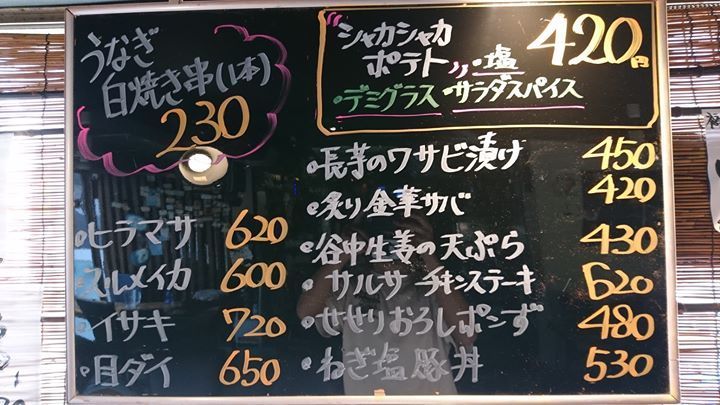 うなぎ
白焼き串(1本)
230
シャカシャカ
ポテト 塩 420円
・デミグラス ・サラダスパイス
・長芋のワサビ漬け 450
・炙り金華サバ 420
・谷中生姜の天ぷら 430
・サルサチキンステーキ 620
・せせりおろしポンず 480
・ねぎ塩豚丼 530
・ヒラマサ 620
・スルメイカ 600
・イサキ 720
・目ダイ 650